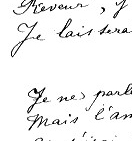 Rêveur, j
Je laissera
Je ne parl
Mais l'am